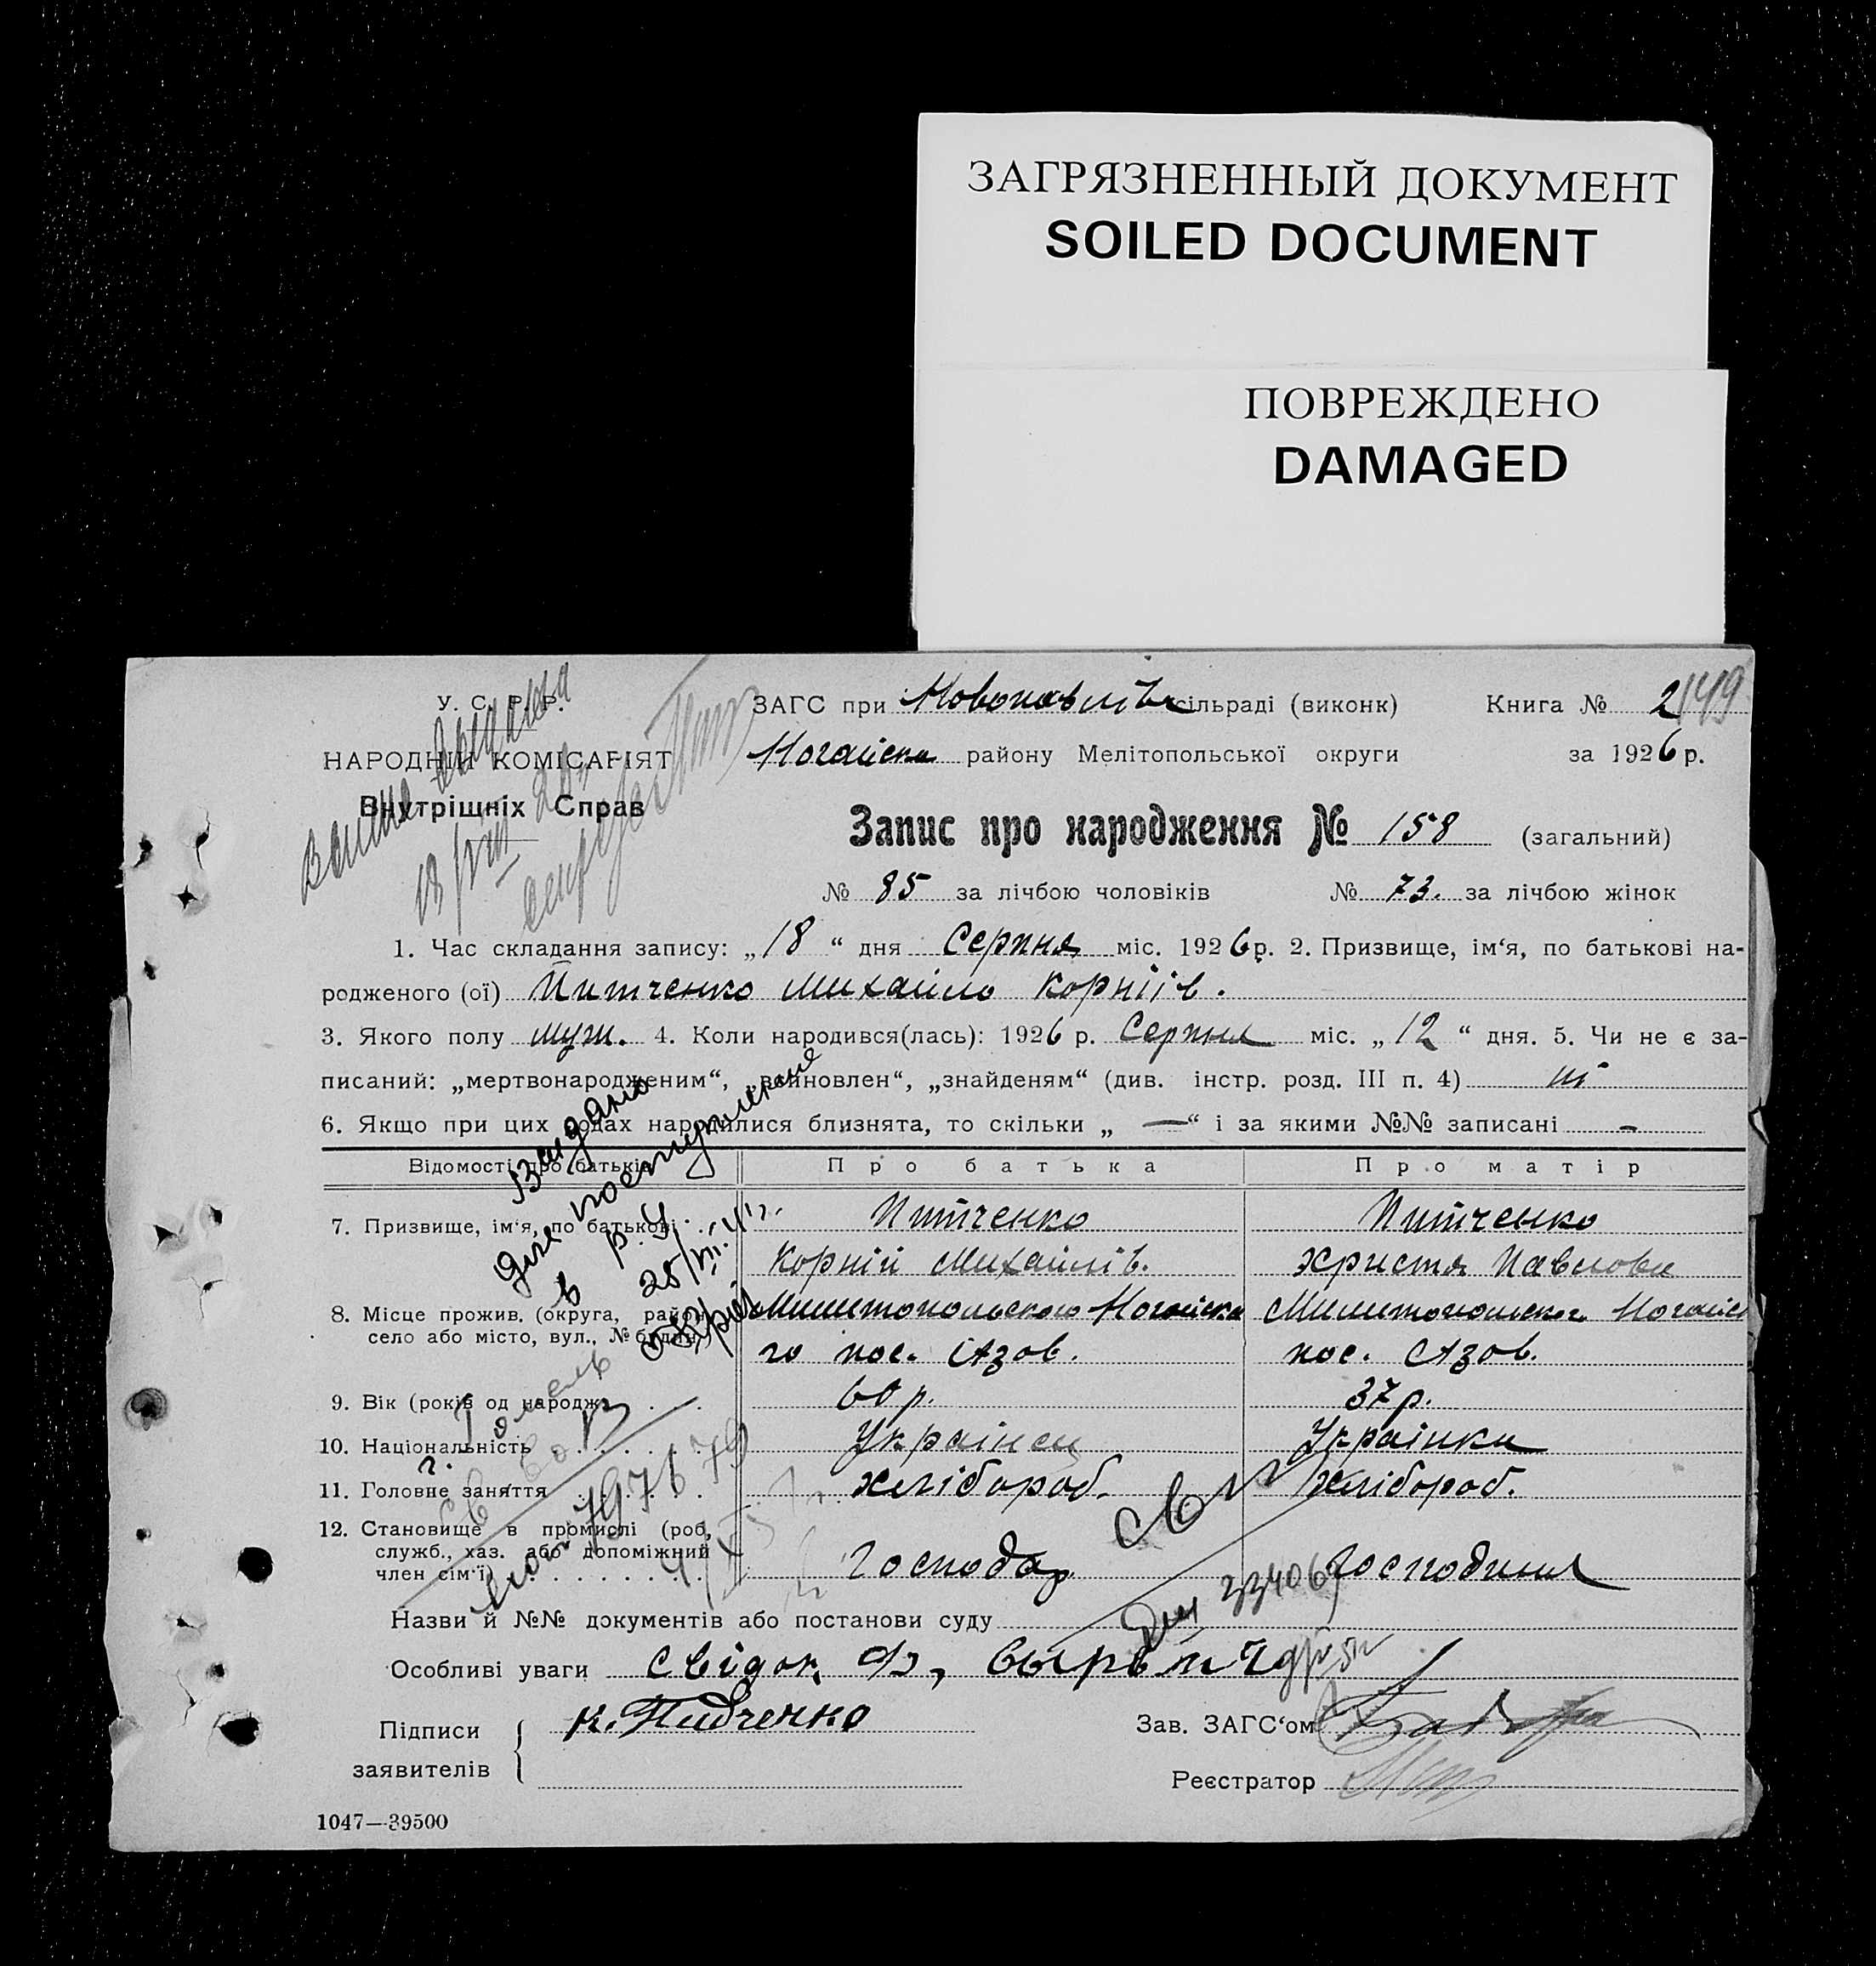 ЗАГРЯЗНЕННЫЙ ДОКУМЕНТ
SOILED DOCUMENT
ПОВРЕЖДЕНО
DAMAGED
У. С. Р. Р.
НАРОДНІЙ КОМІСАРІЯТ
Внутрішніх Справ
ЗАГС при сільраді (виконк) Книга № 2 149
району Мелітопольської округи за 1926 р.
Запис про народження № 158 (загальний)
№ 85 за лічбою чоловіків № 73. за лічбою жінок
1. Час складання запису: „18“ дня Серпня міс. 1926 р. 2. Призвище, ім‘я, по батькові на-
родженого (ої) Питченко Михайло Корніїв.
3. Якого полу муж. 4. Коли народився(лась): 1926 р. Серпня міс. „12“ дня. 5. Чи не є за-
писаний: „мертвонародженим“, „знайденям“ (див. інстр. розд. III п. 4) ні
6. Якщо при цих родах народилися близнята, то скільки „—“ і за якими №№ записані –
Відомості про батьків
Про батька
Про матір
7. Призвище, ім‘я, по батькові Питченко Питченко
Корній Михайлів. Христя Павлова
8. Місце прожив. (округа, район,
село або місто, вул., № будин.) го пос. Азов. пос. Азов.
9. Вік (років од народж.) 60 р. 37 р.
10. Національність Українец Українка
11. Головне заняття хлібороб. хлібороб.
12. Становище в промислі (роб,
служб., хаз. або допоміжний
член сім‘ї) Господар Господиня
Видано
для
в Р. У.
Назви й №№ документів або постанови суду
Особливі уваги свідок
Підписи
заявителів
К. Пидченко
Зав. ЗАГС‘ом
Реєстратор
1047—39500